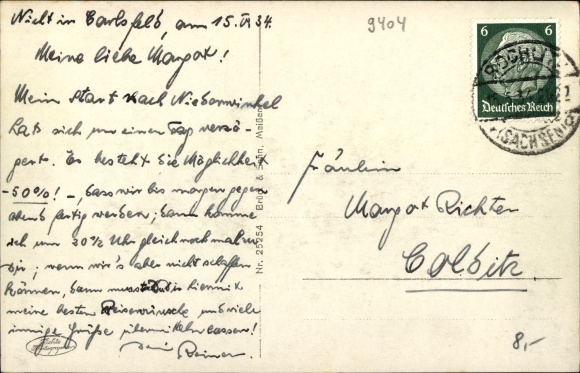 Nicht in Carlsfeld, am 15.VI.34.
Meine liebe Margot!
Mein Start nach Niederwinkel
hat sich um einen Tag verzö-
gert. Es besteht die Möglichkeit
-50%! -, dass wir bis morgen gegen
abend fertig werden; dann komme
ich um 20½ Uhr gleich noch mal zu
Dir; wenn wir's aber nicht schaffen
können, dann musst Du hiermit
meine besten Reisewünsche und viele
innige Grüße übermitteln lassen!
Dein Reiner.
9404
6 6
Deutsches Reich
ROCHLITZ
(SACHSEN)
Nr. 25254 Brück & Sohn, Meißen
Fräulein
Margot Richter
Colditz.
8,-